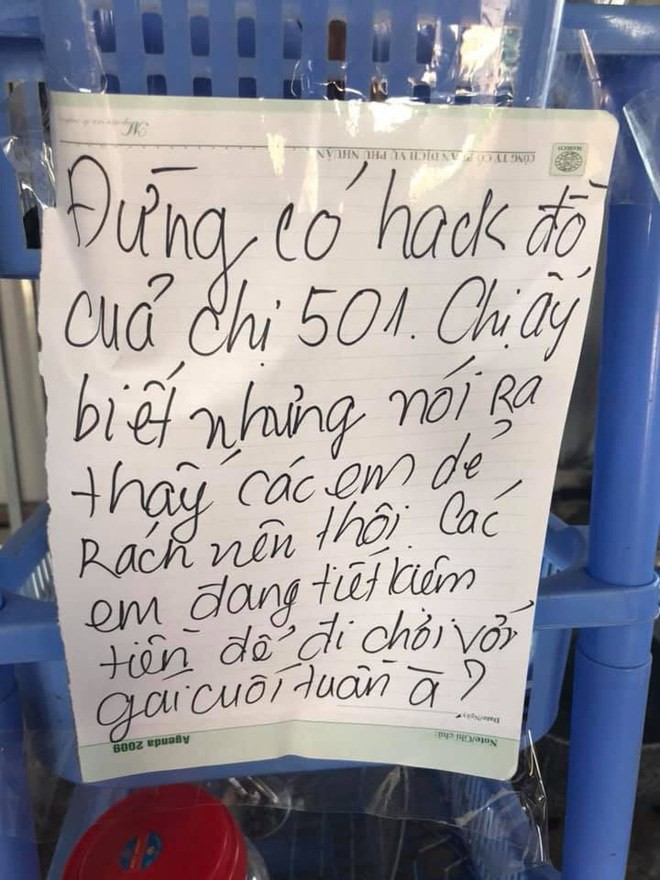 CÔNG TY CỔ PHẦN DỊCH VỤ PHÚ NHUẬN
MASECO
Đừng có hack đồ
cuả chị 501. Chị ấy
biết nhưng nói Ra
thấy các em dẻ
Rách nên thôi. Các
em đang tiết kiệm
tiền để đi chơi với
gái cuối tuần à?
Date/Ngày
Agenda 2009
Note/Ghi chú: